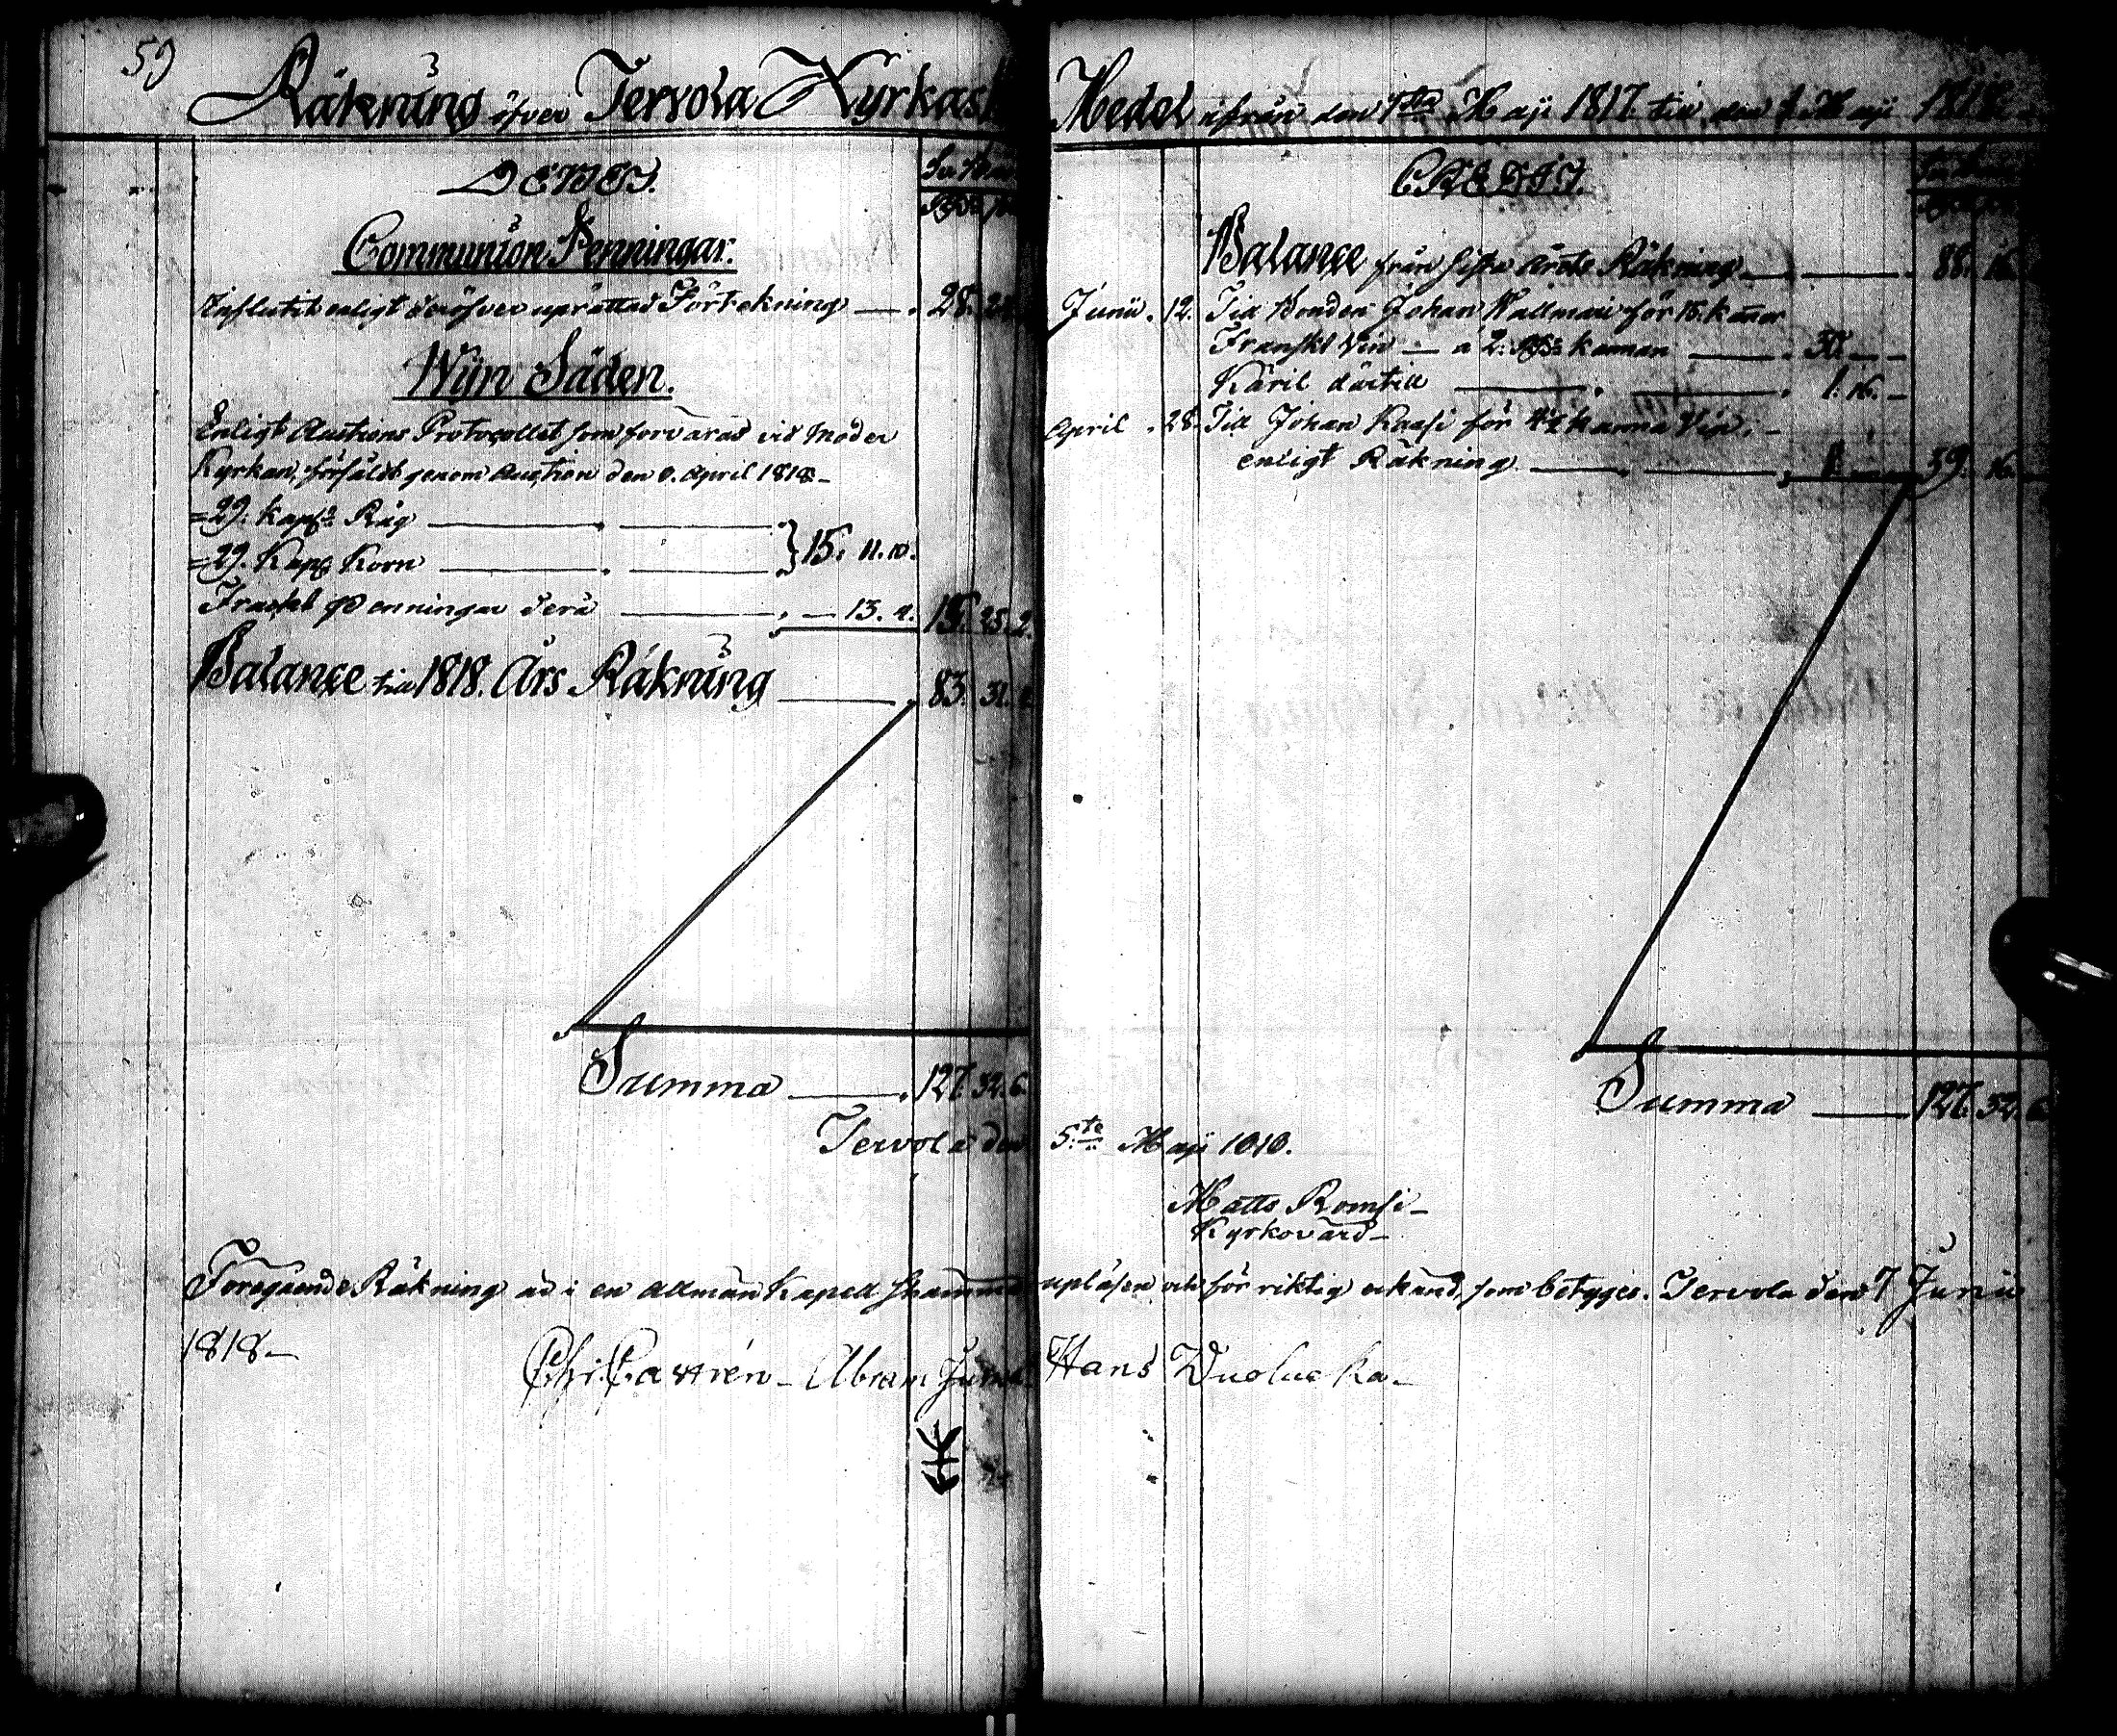 59
Räkning öfver Tervola Kyrkas
DEBET.
Communion Penningar.
Influtit enligt deröfver uprättad Förtekning — 28.
Wijn Säden.
Enligt Auctions Protocollet som förvaras vid Moder
Kyrkan, försåldt genom Auction den 9. April 1818 –
= 29. kapp:r Råg
= 29. Kapp Korn — } 15. 11. 10.
Frackt Penningar derå — 13. 4. 15. 25. 2.
Balance till 1818. Års Räkning — 83. 31.
Summa — 127. 32. 6.
Tervola den
Föregående Räkning är i en allmän Kapell stämma
1818 –
Chr: Castrén – Abram
Medel ifrån den 1sta Maji 1817. till den 1 Maji 1818
CREDIT.
Balance från sista årets Räkning — 88. 16.
Junii. 12. Till Bonden Johan Hallmari för 15. kannor
Franskt Vin — a 2. kannan — 30. — –
Käril därtill — 1. 16. –
April. 28. Till Johan Kaasi för 4 1/2 kanna Vin. –
enligt Räkning — 39. 16.
Summa — 127. 32. 6
5:te Maji 1818.
Matts Romsi –
Kyrkovärd –
upläsen och för riktig erkänd, som betyges. Tervola den 7 Junii
Hans Vuolucka –